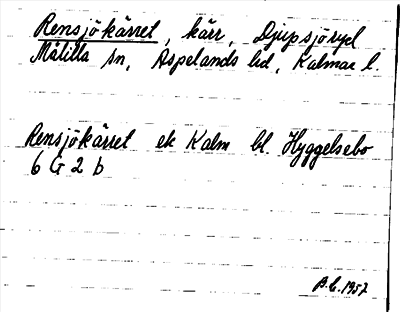 Rensjökärret, kärr, Djupsjöryd
Målilla sn, Aspelands hd, Kalmar l.
Rensjökärret ek Kalm bl. Hyggelsebo
6 G 2 b
B.L. 1957